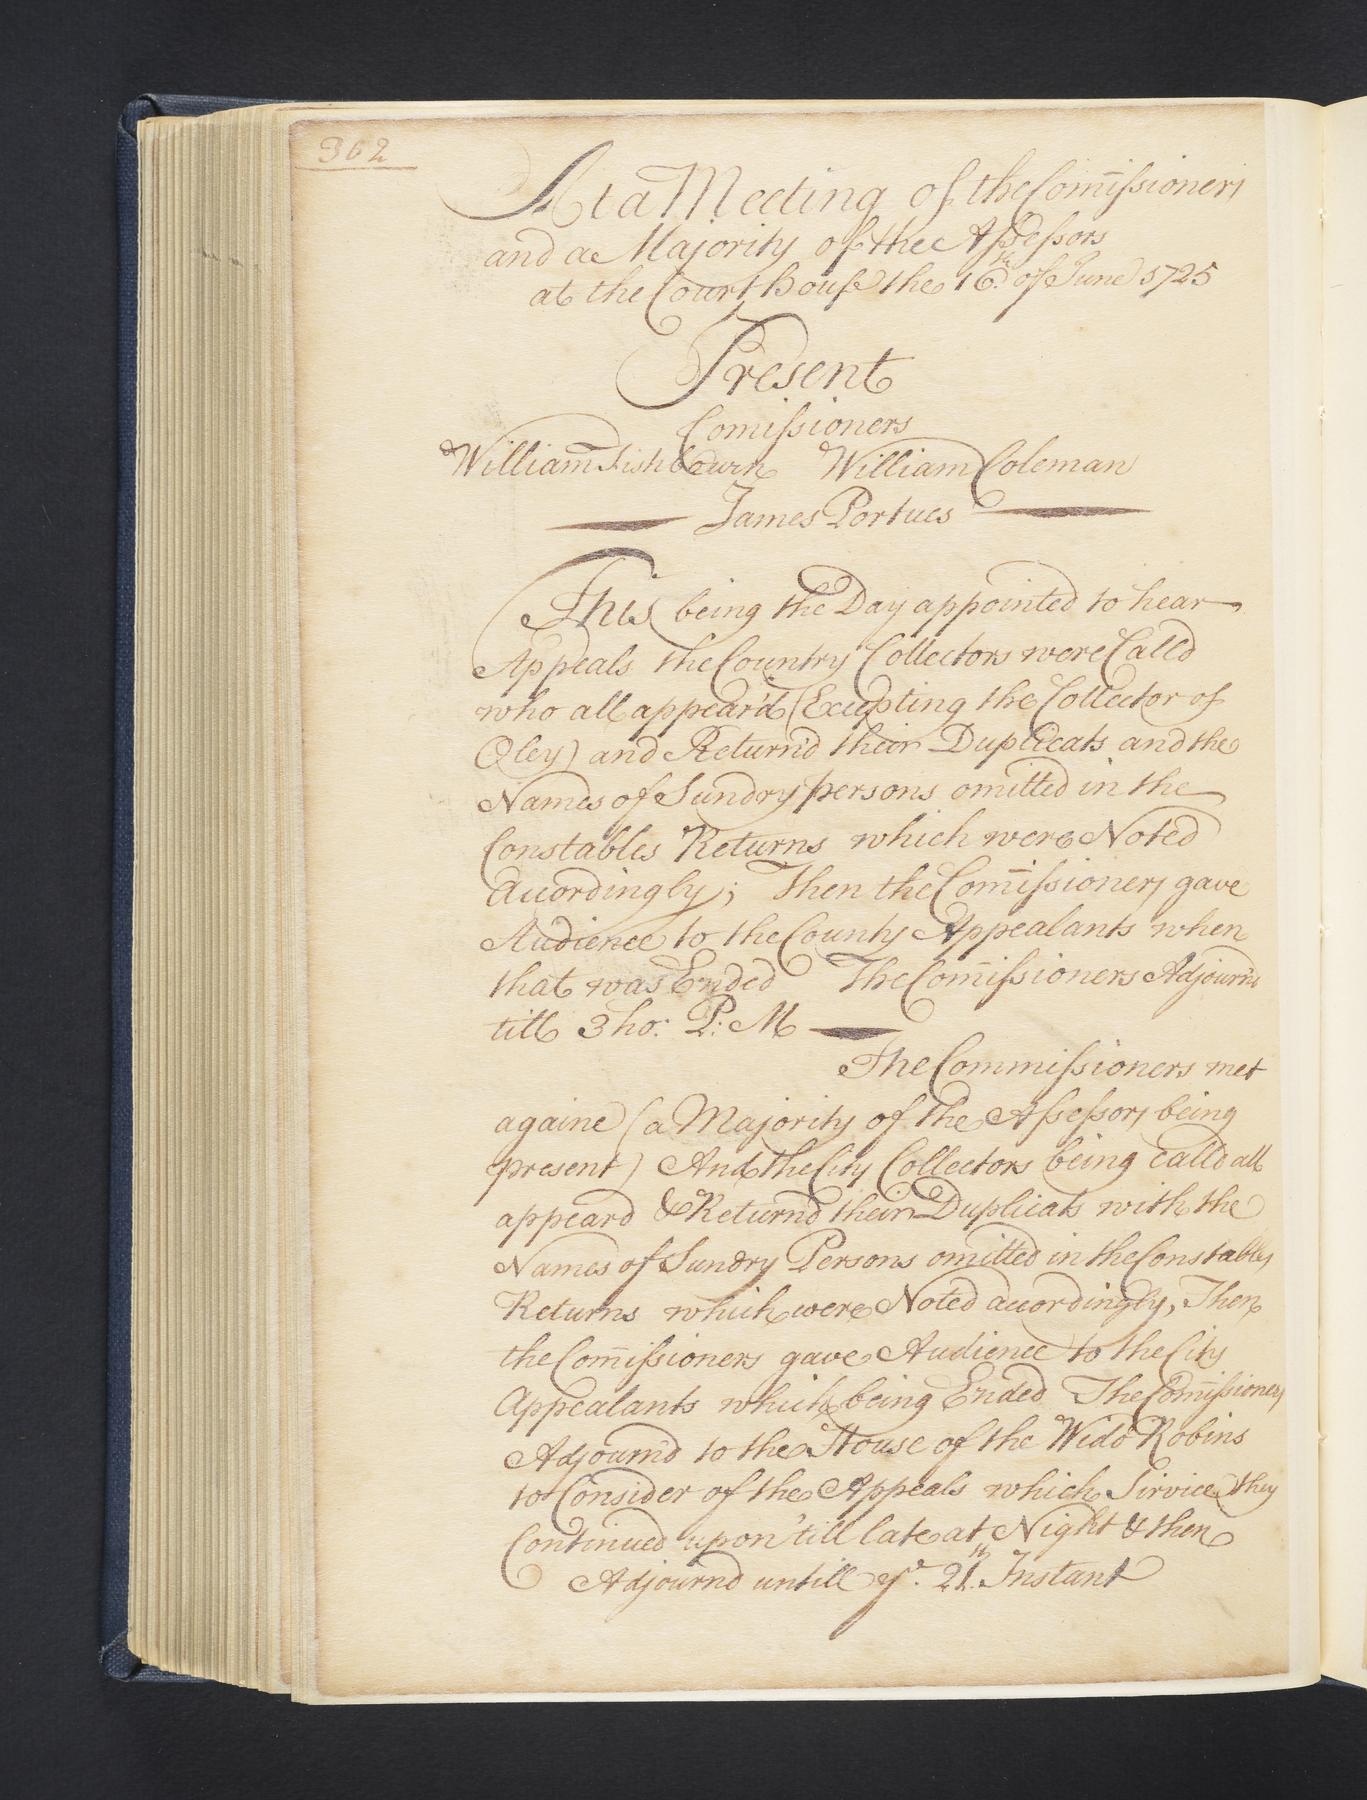 362
At a Meeting of the Com̄issioners
and a Majority of thee Assessors
at the Court House the 16th of June 1725
Present
Comissioners
William Fishbourn William Coleman
James Portues
This being the Day appointed to hear
Appeals the Country Collectors were Calld
who all appear'd (Excepting the Collector of
Oley) and Return'd their Duplicats and the
Names of Sundry persons omitted in the
Constables Returns which were Noted
Accordingly; Then the Com̄issioners gave
Audience to the County Appealants when
that was Ended The Com̄issioners Adjourn'd
till 3 ho: P: M
The Commissioners met
againe (a Majority of the Assessors being
present) And the City Collectors being calld all
appeard & Return'd their Duplicats with the
Names of Sundry Persons omitted in the Constables
Returns which were Noted accordingly, Then
the Com̄issioners gave Audience to the City
Appealants which being Ended The Com̄issioners
Adjourn'd to the House of the Widō Robins
to Consider of the Appeals which Service they
Continued upon 'till late at Night & then
Adjournd untill ye. 21th. Instant